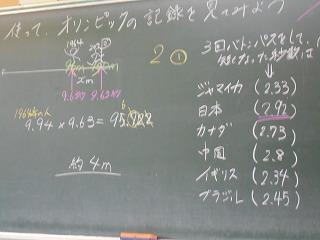 使って、オリンピックの記録を見てみよう
1964
xm
9.63秒 9.63秒
1964年の人
9.94 × 9.63 = 95.722
6
約4m
2 ①
3回バトンパスをして、
↓
ジャマイカ (2.33)
日本 (2.92)
カナダ (2.73)
中国 (2.8)
イギリス (2.34)
ブラジル (2.45)